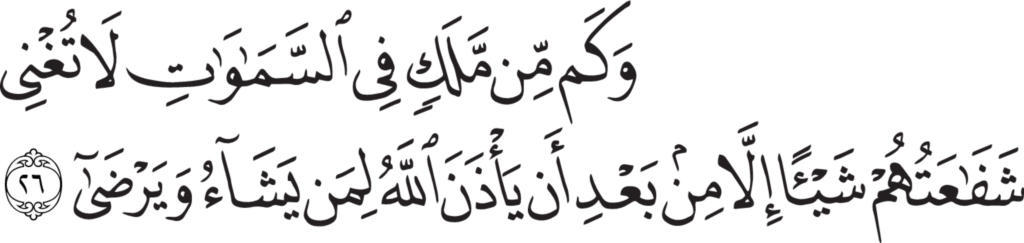 وَكَم مِّن مَّلَكٍ فِى ٱلسَّمَـٰوَٰتِ لَا تُغْنِى
شَفَـٰعَتُهُمْ شَيْـًٔا إِلَّا مِنۢ بَعْدِ أَن يَأْذَنَ ٱللَّهُ لِمَن يَشَآءُ وَيَرْضَىٰٓ ٢٦